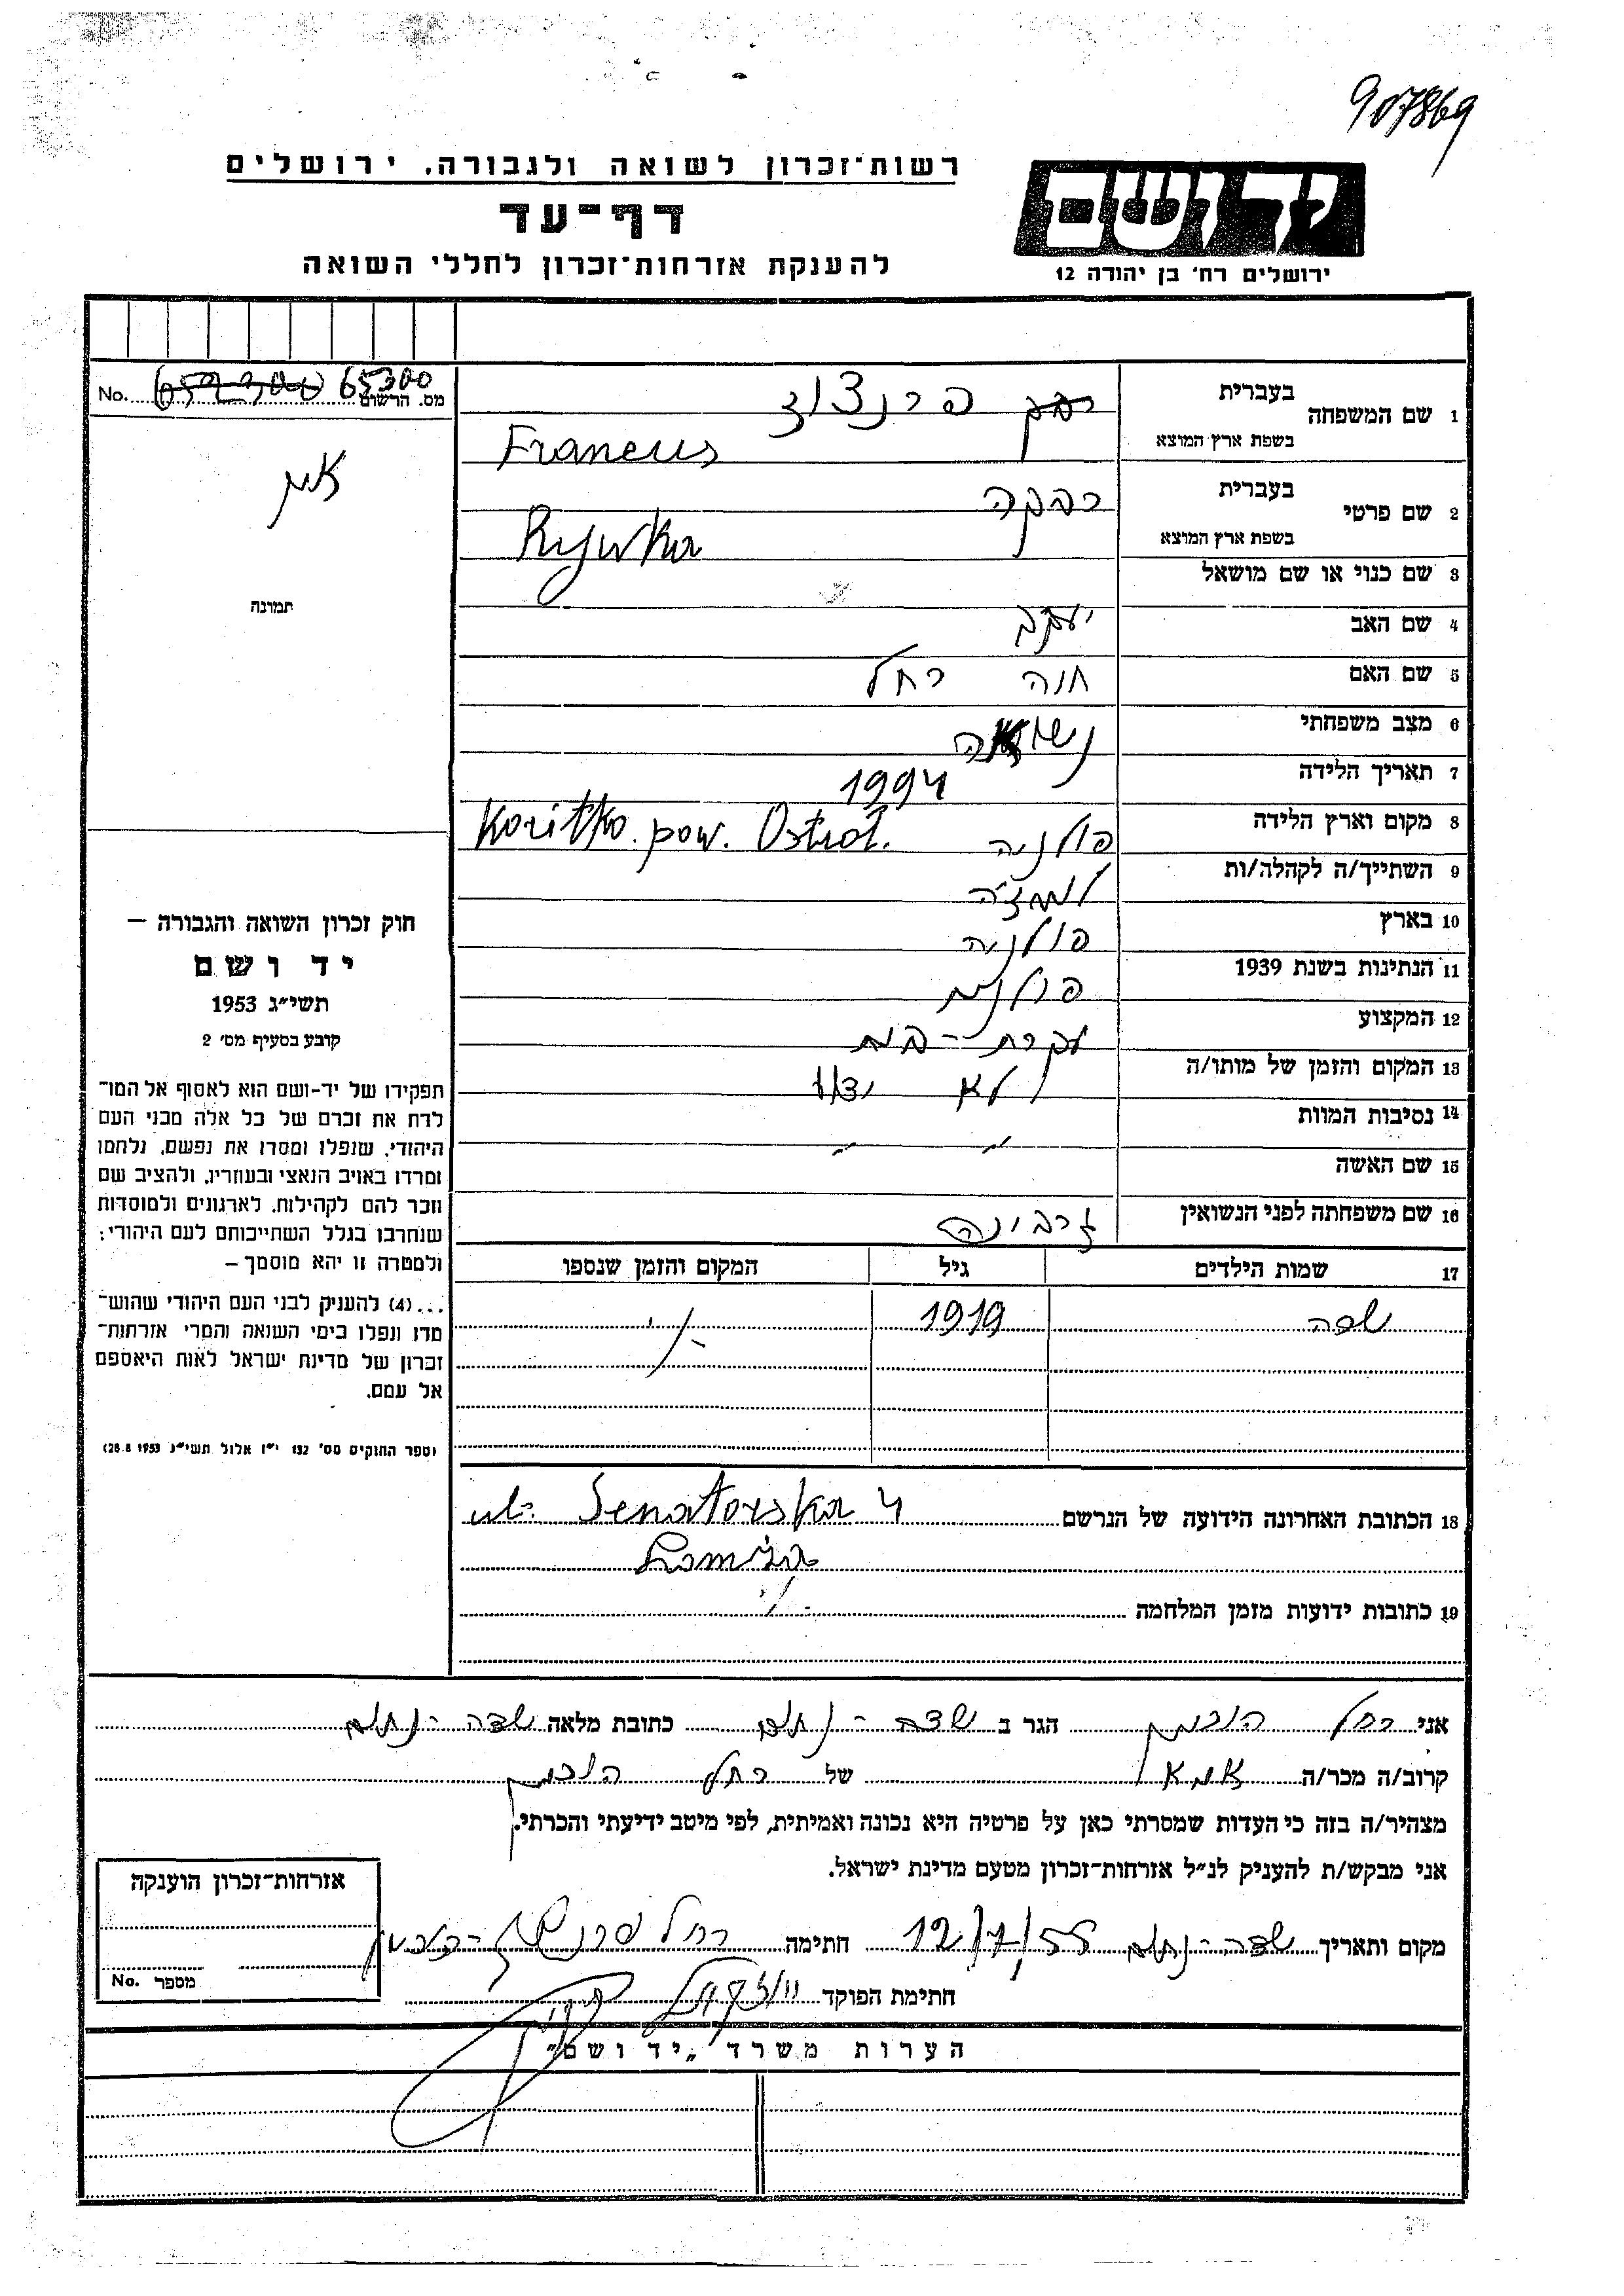 907869
רשות־זכרון לשואה ולגבורה, ירושלים
דף־עד
להענקת אזרחות־זכרון לחללי השואה
יד ושם
ירושלים רח׳ בן יהודה 12
מס. הרשום 65300 No.
תמונה
1 שם המשפחה בעברית פרנצוז
בשפת ארץ המוצא Francus
2 שם פרטי בעברית רבקה
בשפת ארץ המוצא Rywka
3 שם כנוי או שם מושאל
4 שם האב יעקב
5 שם האם חנה רחל
6 מצב משפחתי נשואה
7 תאריך הלידה 1994
8 מקום וארץ הלידה פולניה Koritko. pow. Ostroł.
9 השתייך/ה לקהלה/ות לומז'ה
10 בארץ פולניה
11 הנתינות בשנת 1939 פולנית
12 המקצוע עקרת-בית
13 המקום והזמן של מותו/ה לא ידוע
14 נסיבות המוות
15 שם האשה
16 שם משפחתה לפני הנשואין
17 שמות הילדים גיל המקום והזמן שנספו
1919
18 הכתובת האחרונה הידועה של הנרשם ul. Senatorska 4
Łomża
19 כתובות ידועות מזמן המלחמה
חוק זכרון השואה והגבורה –
יד ושם
תשי״ג 1953
קובע בסעיף מס׳ 2
תפקידו של יד-ושם הוא לאסוף אל המו־
לדת את זכרם של כל אלה מבני העם
היהודי, שנפלו ומסרו את נפשם, נלחמו
ומרדו באויב הנאצי ובעוזריו, ולהציב שם
וזכר להם לקהילות, לארגונים ולמוסדות
שנחרבו בגלל השתייכותם לעם היהודי;
ולמטרה זו יהא מוסמך –
...(4) להעניק לבני העם היהודי שהוש־
מדו ונפלו בימי השואה והמרי אזרחות־
זכרון של מדינת ישראל לאות היאספם
אל עמם.
(ספר החוקים מס׳ 132 י״ז אלול תשי״ג 28.8.1953)
אני רחל הוכמן הגר ב שדה-נחום כתובת מלאה שדה-נחום
קרוב/ה מכר/ה אמא של רחל הוכמן
מצהיר/ה בזה כי העדות שמסרתי כאן על פרטיה היא נכונה ואמיתית, לפי מיטב ידיעתי והכרתי.
אני מבקש/ת להעניק לנ״ל אזרחות־זכרון מטעם מדינת ישראל.
מקום ותאריך שדה-נחום 12/7/55 חתימה רחל פרנצוז-הוכמן
חתימת הפוקד
אזרחות־זכרון הוענקה
מספר No.
הערות משרד „יד ושם״